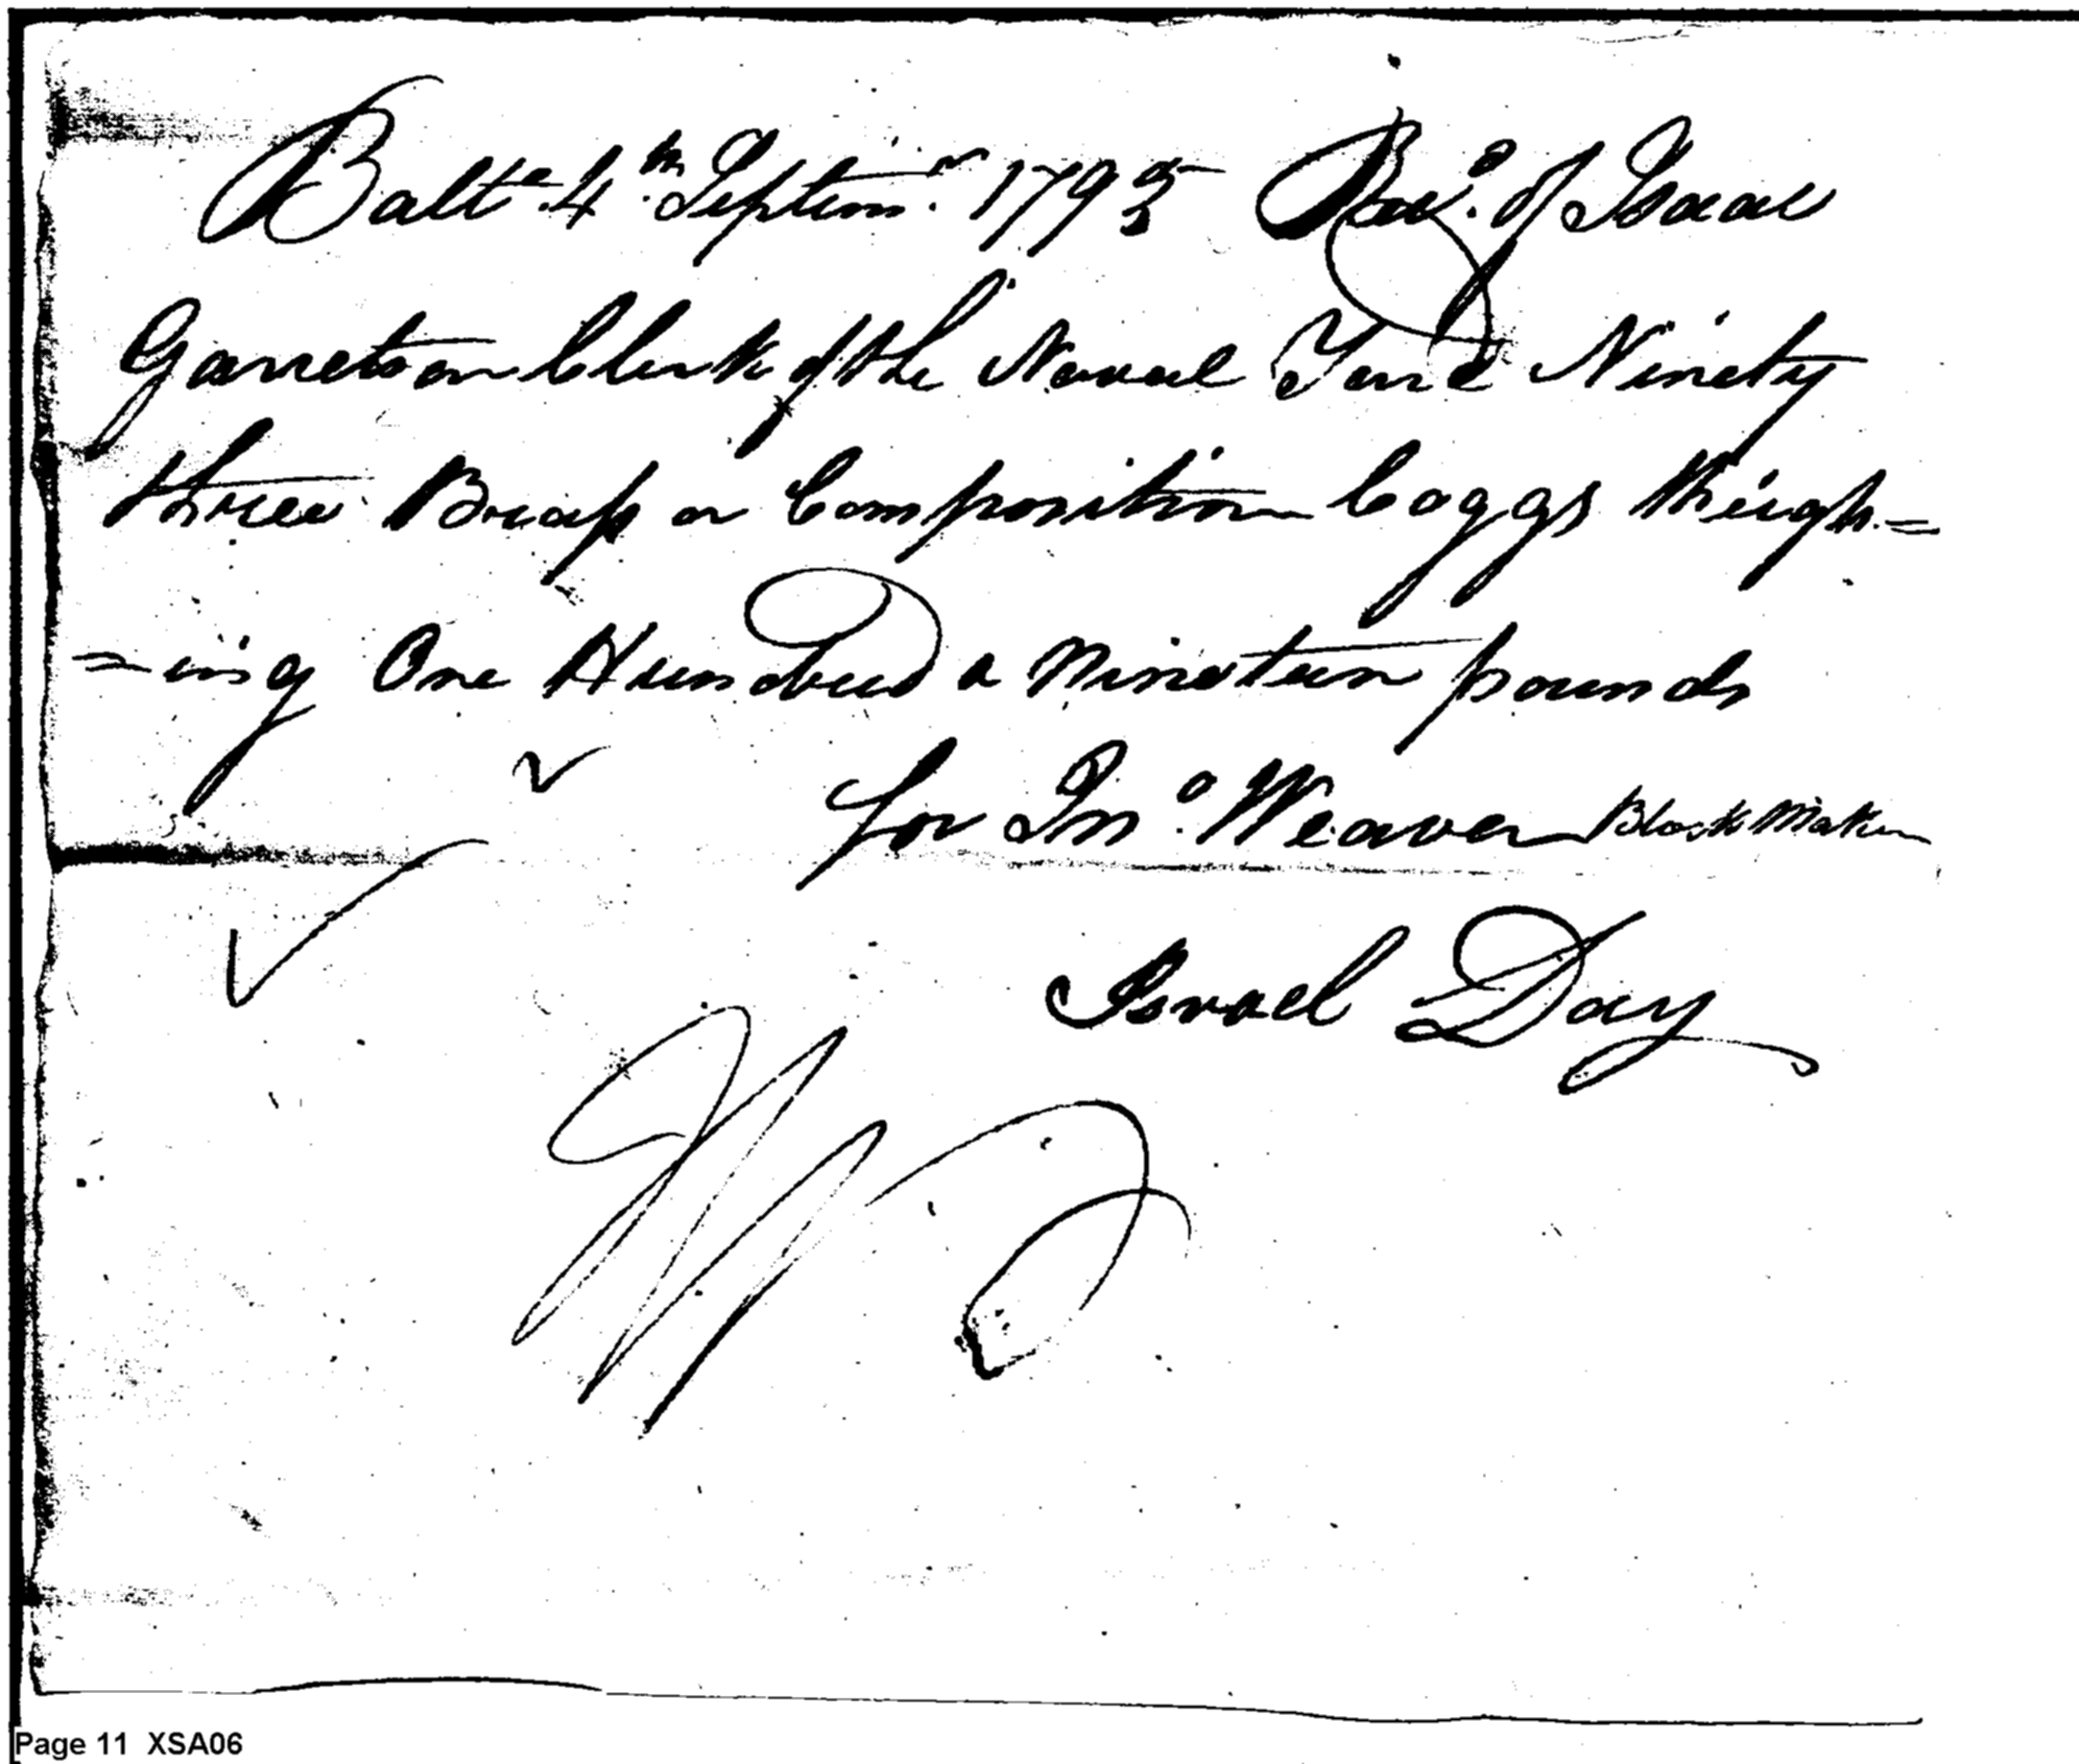 Balte 4th Septemr. 1795 Recd. of Isaac
Garretson Clerk of the Naval Yard Ninety
three Brass or Composition Coggs Weigh=
=ing One Hundred & Nineteen pounds
for Jno. Weaver Block Maker
Israel Day
Page 11 XSA06